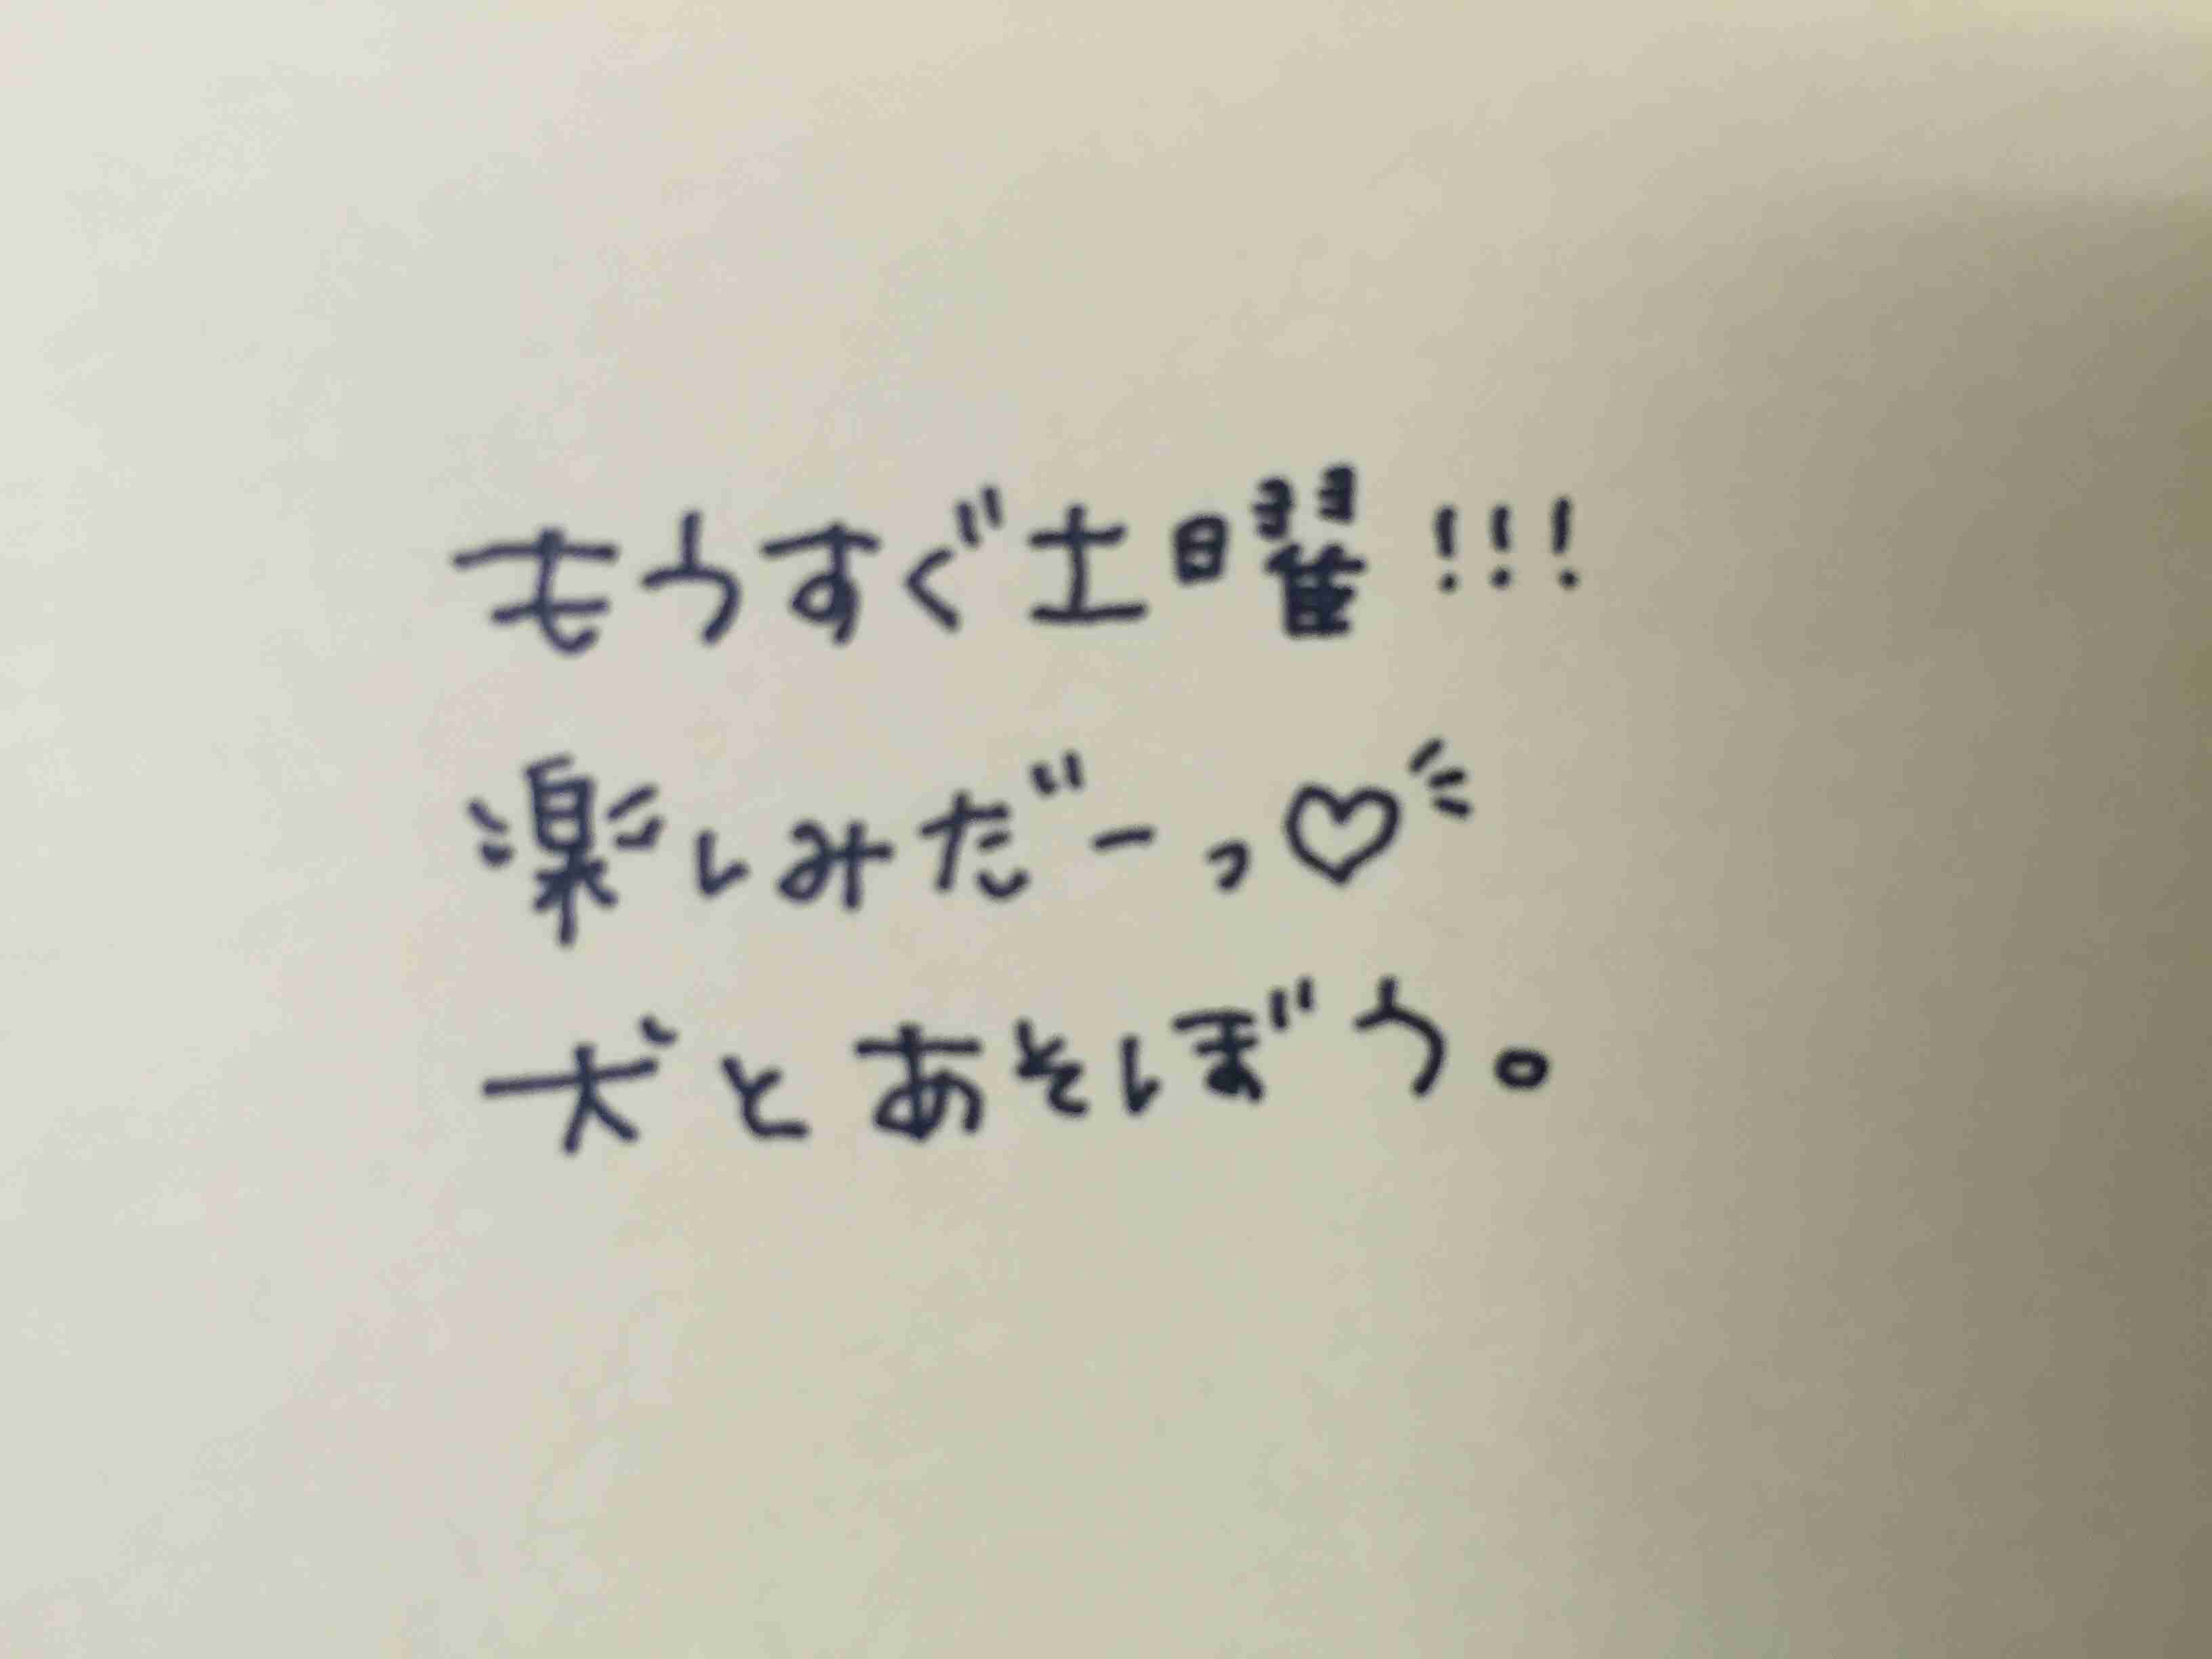 もうすぐ土曜!!!
楽しみだーっ♡
犬とあそぼう。